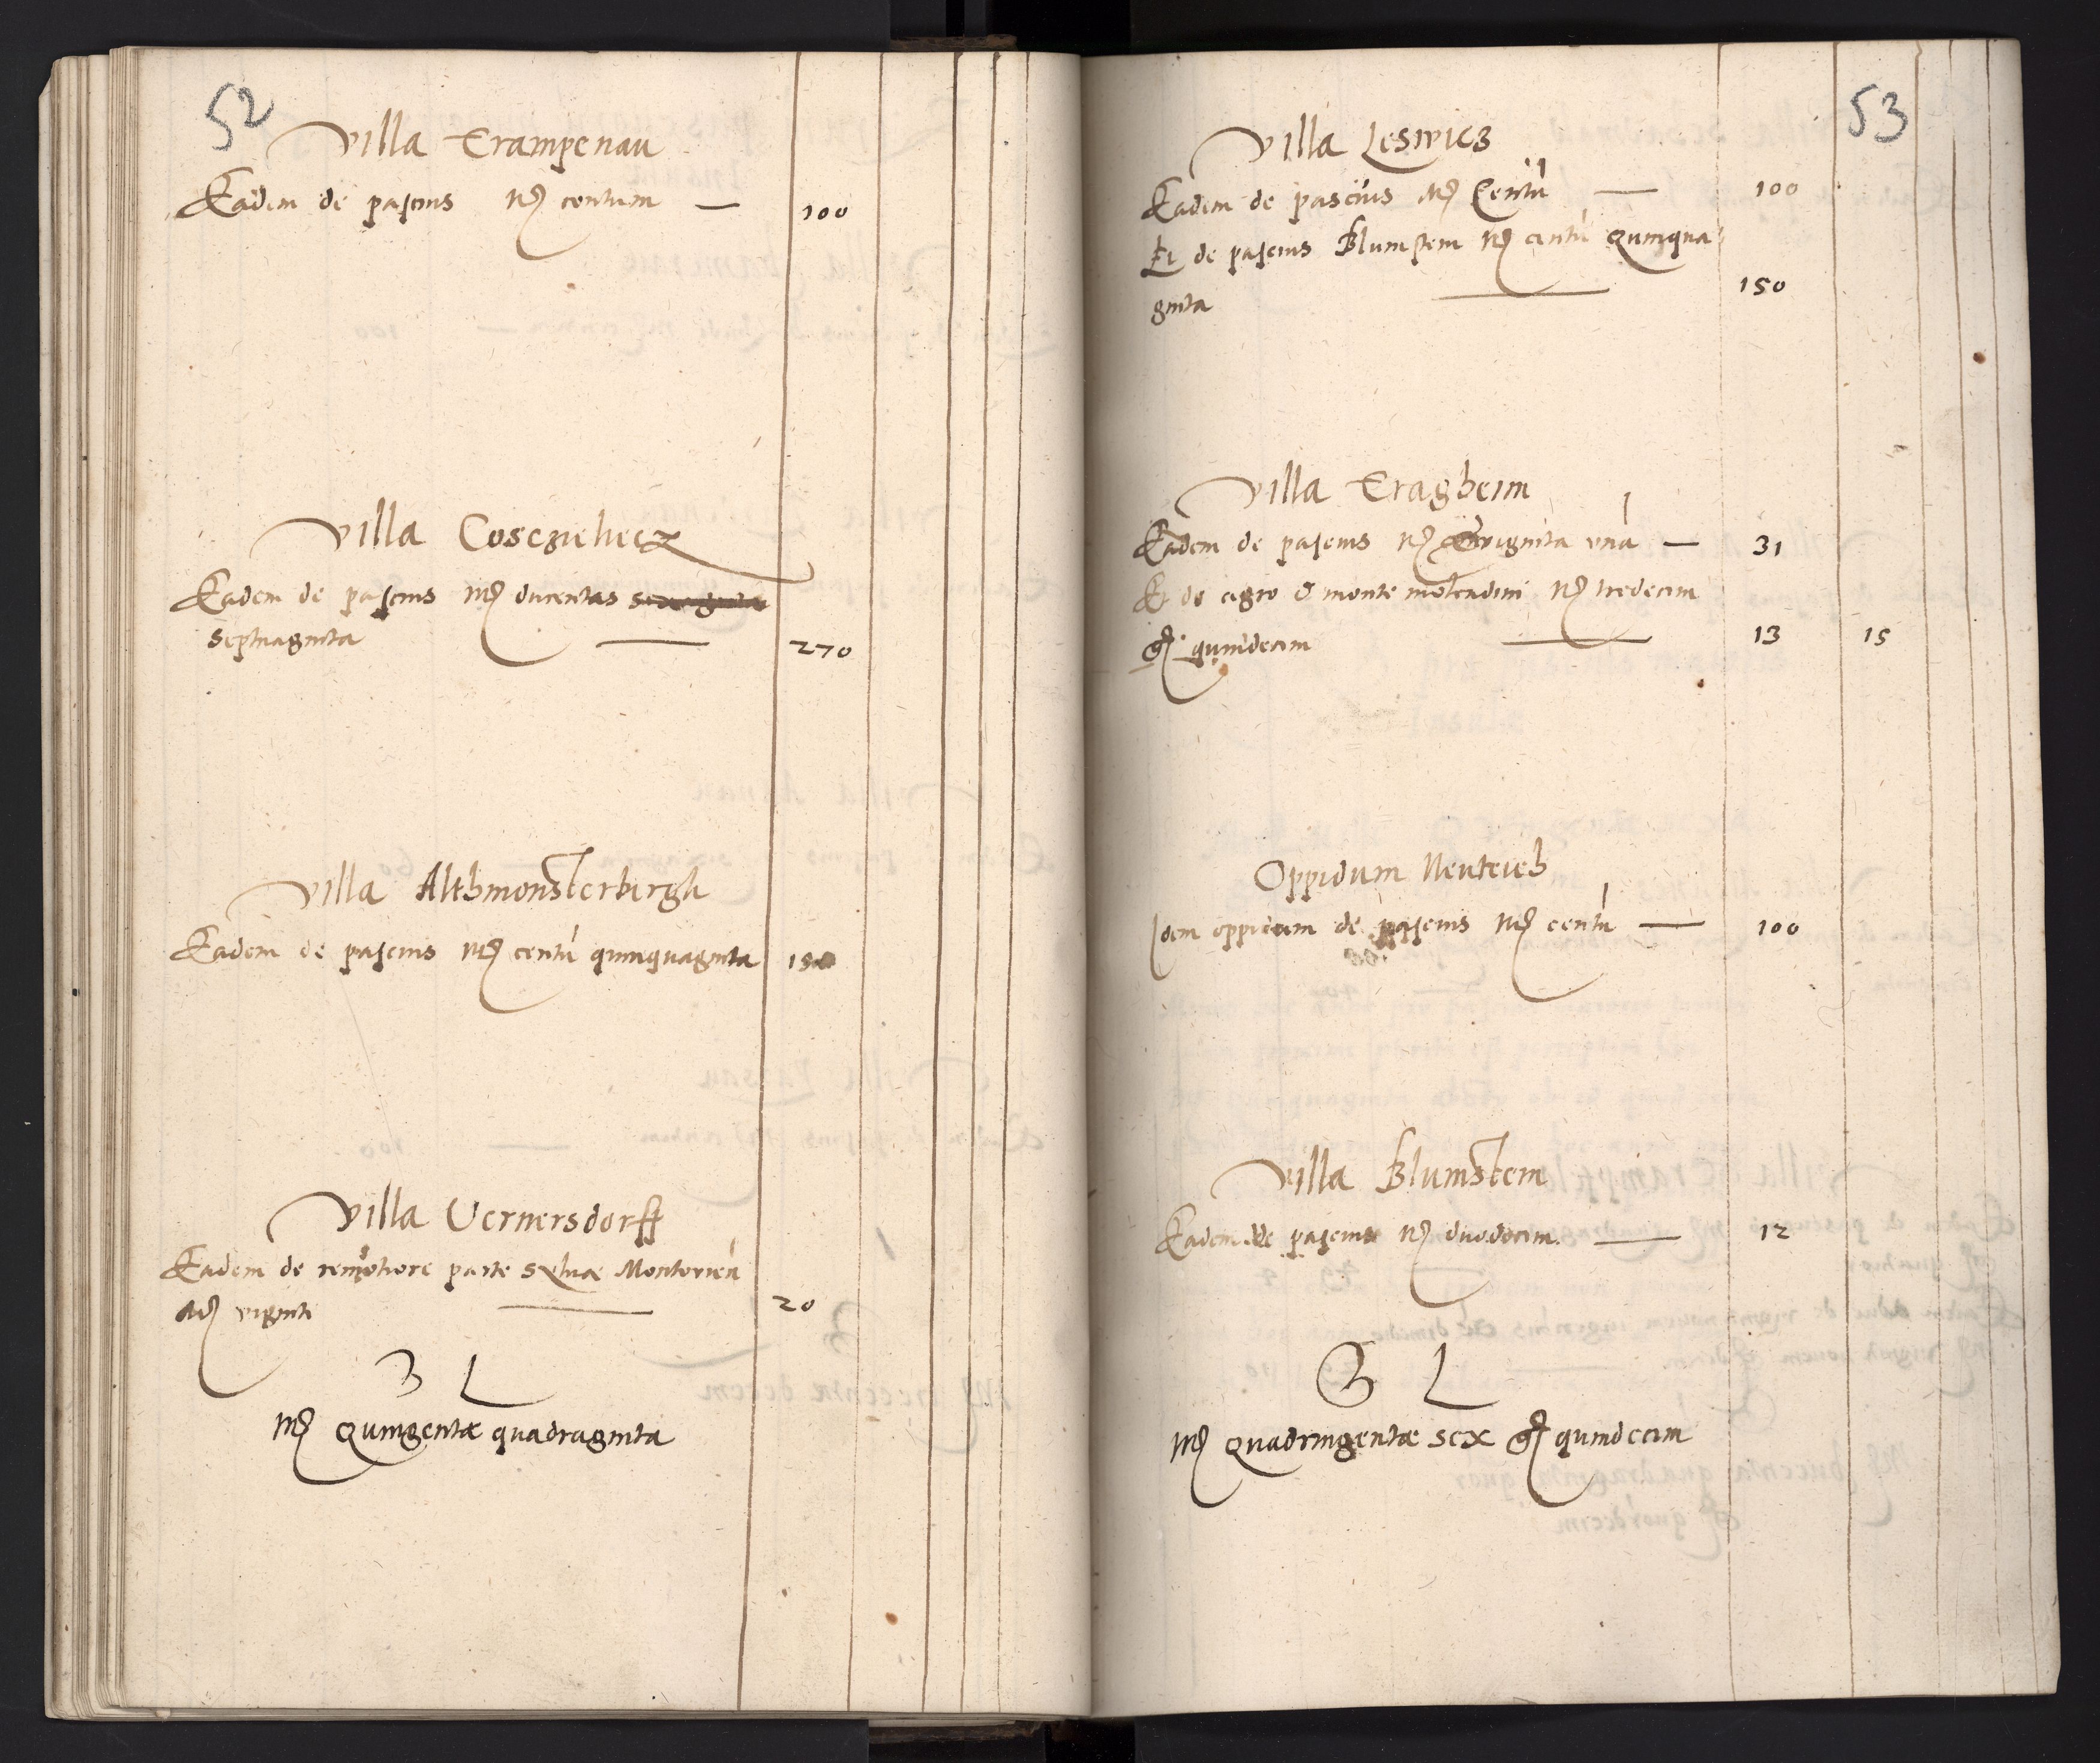 52
Villa Trampenau
Eadem de pascuis mrc centum — 100
Villa Cosczielieczx
Eadem de pascuis mrc ducentas
septuaginta — 270
Villa Althmonsterbergh
Eadem de pascuis mrc centu quinquaginta 150
Villa Vernersdorff
Eadem de remotiore parte sylvae Montovien
mrc viginti — 20
L
mrc Quingentae quadraginta
53
Villa Leswicz
Eadem de pascuis mrc Centu — 100
Et de pascuis Blumstein mrc centu Quinqua
ginta — 150
Villa Tragheim
Eadem de pascuis mrc Triginta una — 31
Et de agro & monte molendini mrc tredecim
gr quindecim — 13 15
Oppidum Neuteich
Idem oppidum de pascuis mrc centu — 100
Villa Blumstein
Eadem de pascuis mrc duodecim — 12
L
mrc Quadringentae sex gr quindecim